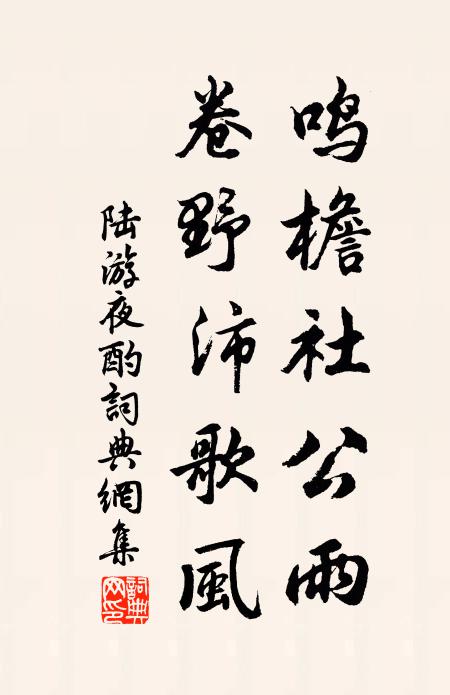 鸣檐社公雨
卷野沛歌風
陆游夜酌詞典網集
詞典